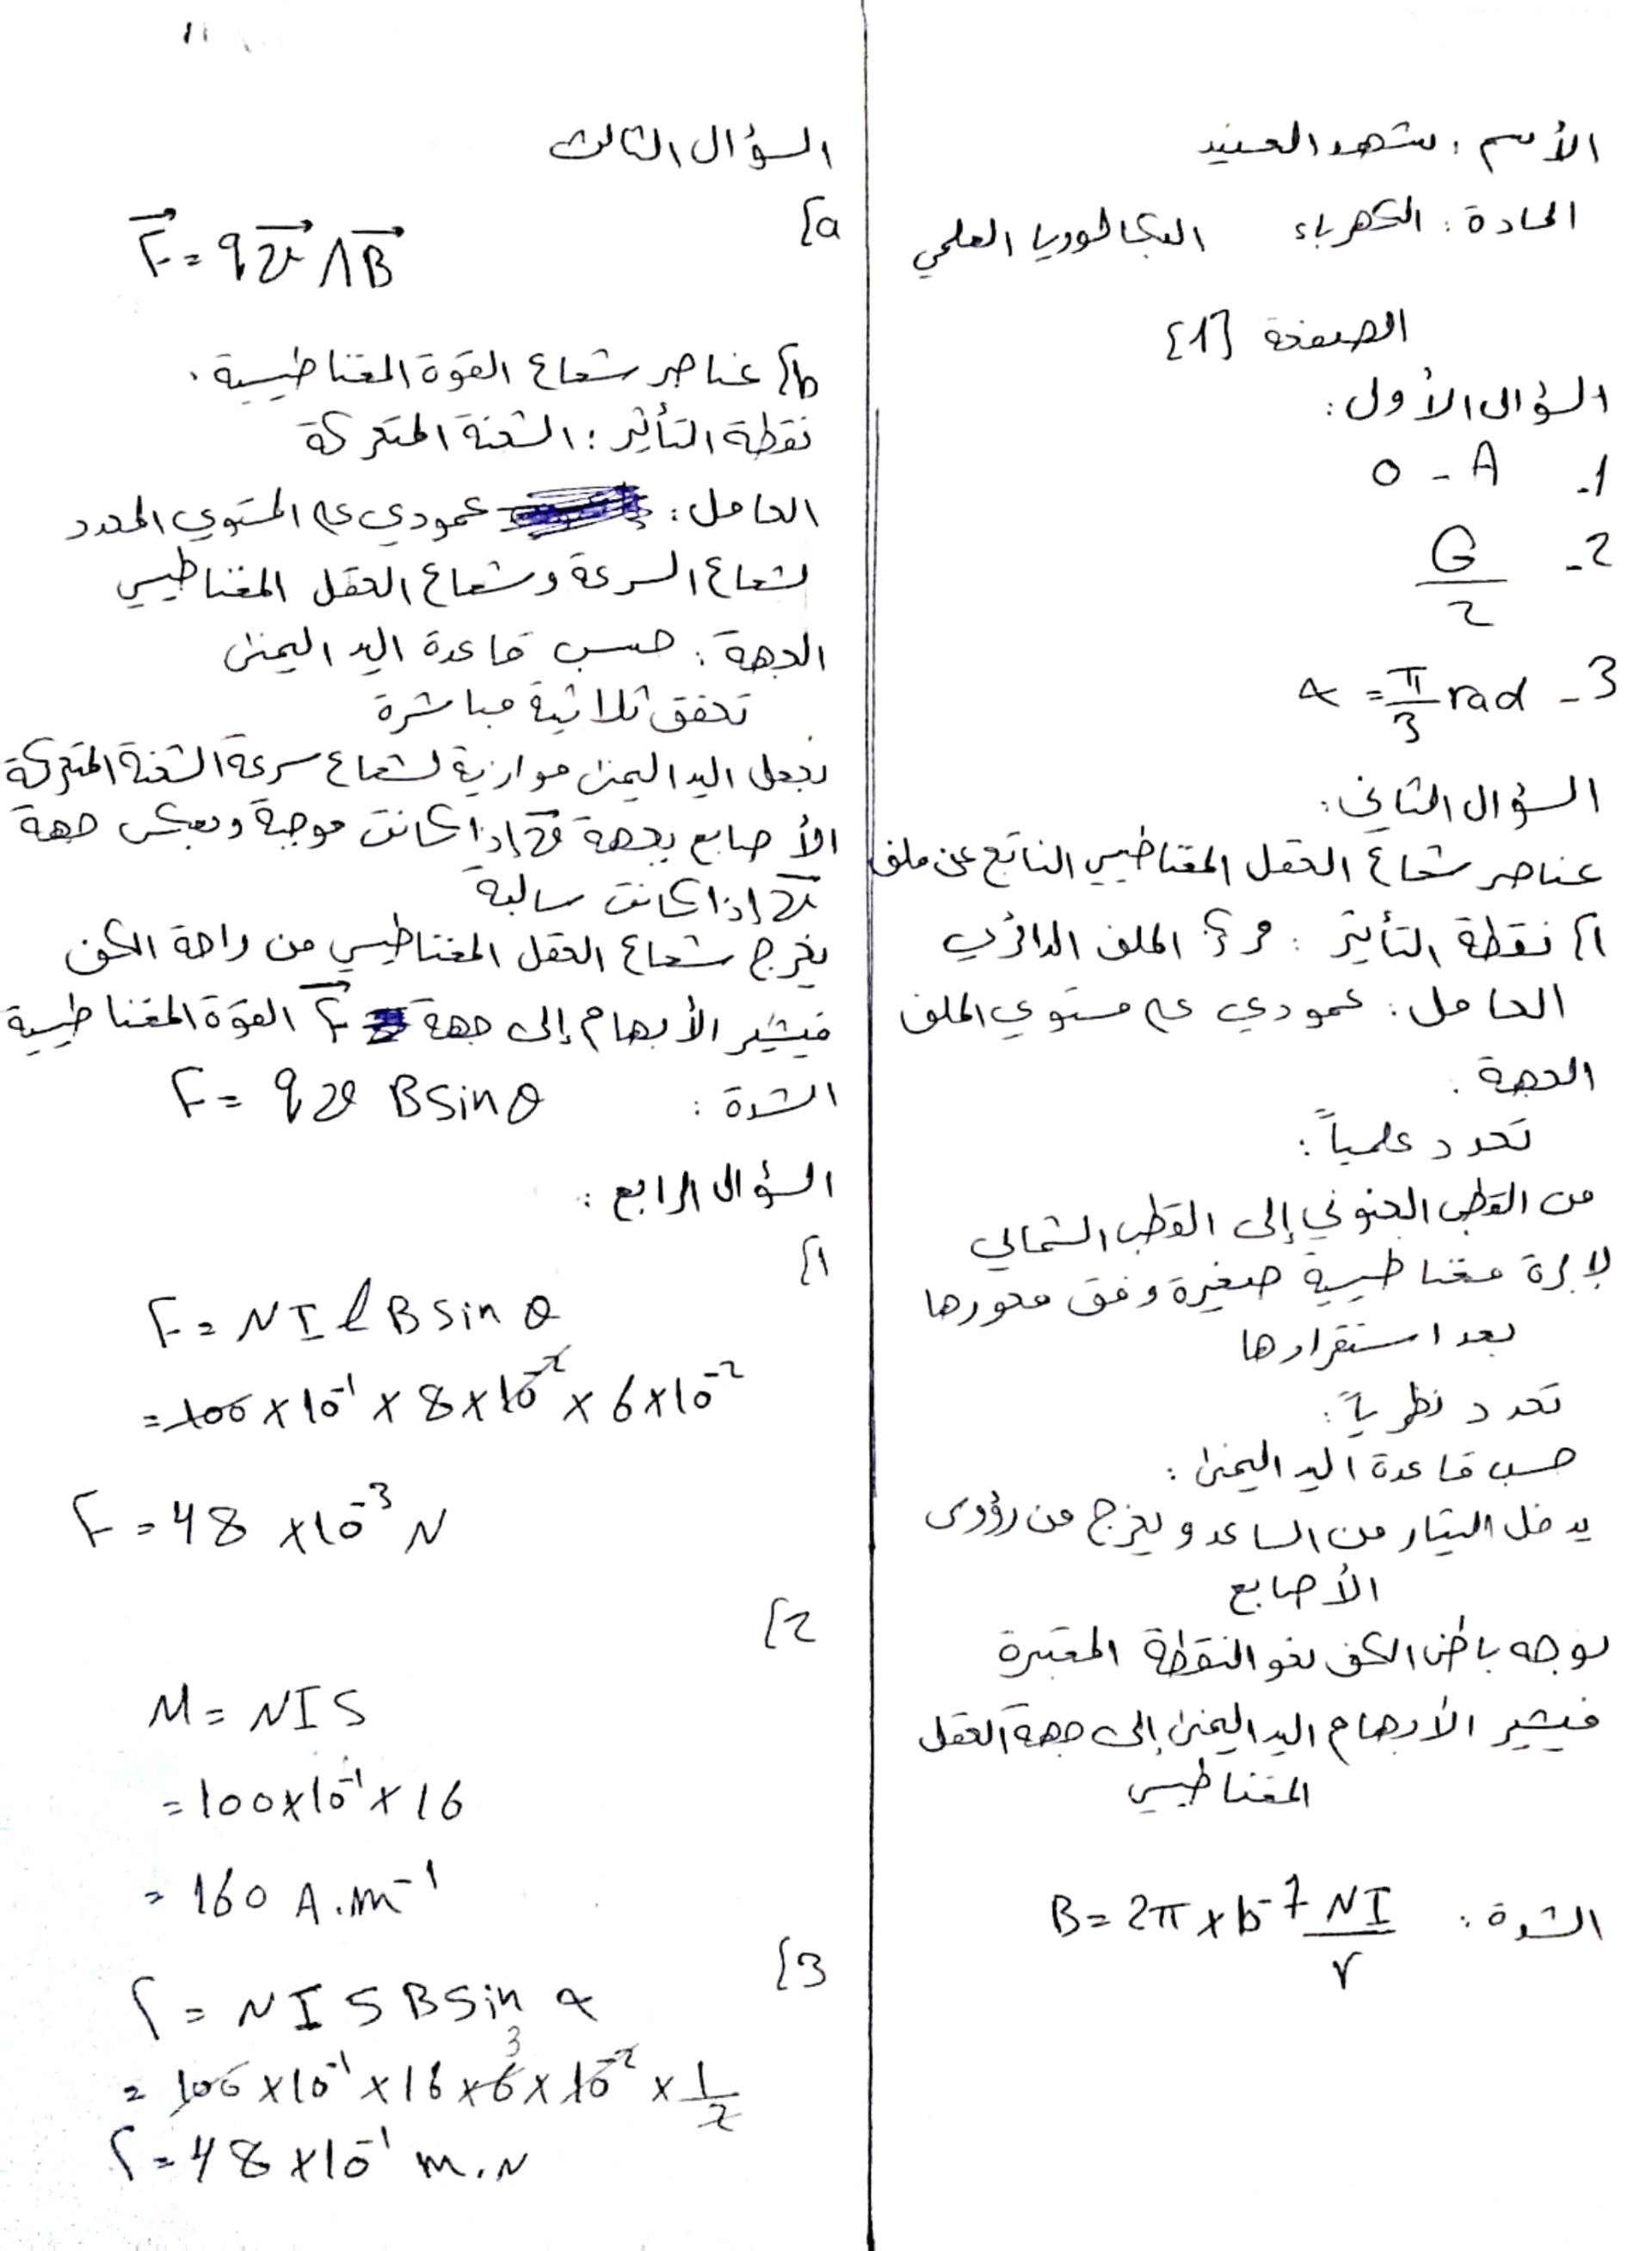 الأسم : شهد العنيد
المادة : الكهرباء البكالوريا العلمي
الصفحة {1}
السؤال الأول :
1- A - 0
2- G/2
3- α = π/3 rad
السؤال الثاني :
عناصر شعاع الحقل المغناطيسي الناتج عن ملف
1} نقطة التأثير : مركز الملف الدائري
الحامل : عمودي على مستوي الملف
الجهة :
تحدد علمياً :
من القطب الجنوبي إلى القطب الشمالي
لإبرة مغناطيسية صغيرة وفق محورها
بعد استقرارها
تحدد نظرياً :
حسب قاعدة اليد اليمنى :
يدخل التيار من الساعد و يخرج من رؤوس
الأصابع
نوجه باطن الكف نحو النقطة المعتبرة
فيشير الأبهام اليد اليمنى إلى جهة الحقل
المغناطيسي
الشدة : B = 2π × 10⁻⁷ NI/r
السؤال الثالث
a}
F⃗ = q v⃗ ∧ B⃗
b} عناصر شعاع القوة المغناطيسية .
نقطة التأثير : الشحنة المتحركة
الحامل : عمودي على المستوي المحدد
لشعاع السرعة وشعاع الحقل المغناطيسي
الجهة : حسب قاعدة اليد اليمنى
تحقق ثلاثية مباشرة
نجعل اليد اليمنى موازية لشعاع سرعة الشحنة المتحركة
الأصابع بجهة v⃗ إذا كانت موجبة وبعكس جهة
v⃗ إذا كانت سالبة
يخرج شعاع الحقل المغناطيسي من راحة الكف
فيشير الأبهام إلى جهة F⃗ القوة المغناطيسية
الشدة : F = q v B sin θ
السؤال الرابع :
1}
F = N I ℓ B sin θ
= 100 × 10⁻¹ × 8 × 10⁻² × 6 × 10⁻²
F = 48 × 10⁻³ N
2}
M = N I S
= 100 × 10⁻¹ × 16
= 160 A . m⁻¹
3}
Γ = N I S B sin α
3
= 100 × 10⁻¹ × 16 × 6 × 10⁻² × 1/2
Γ = 48 × 10⁻¹ m . N